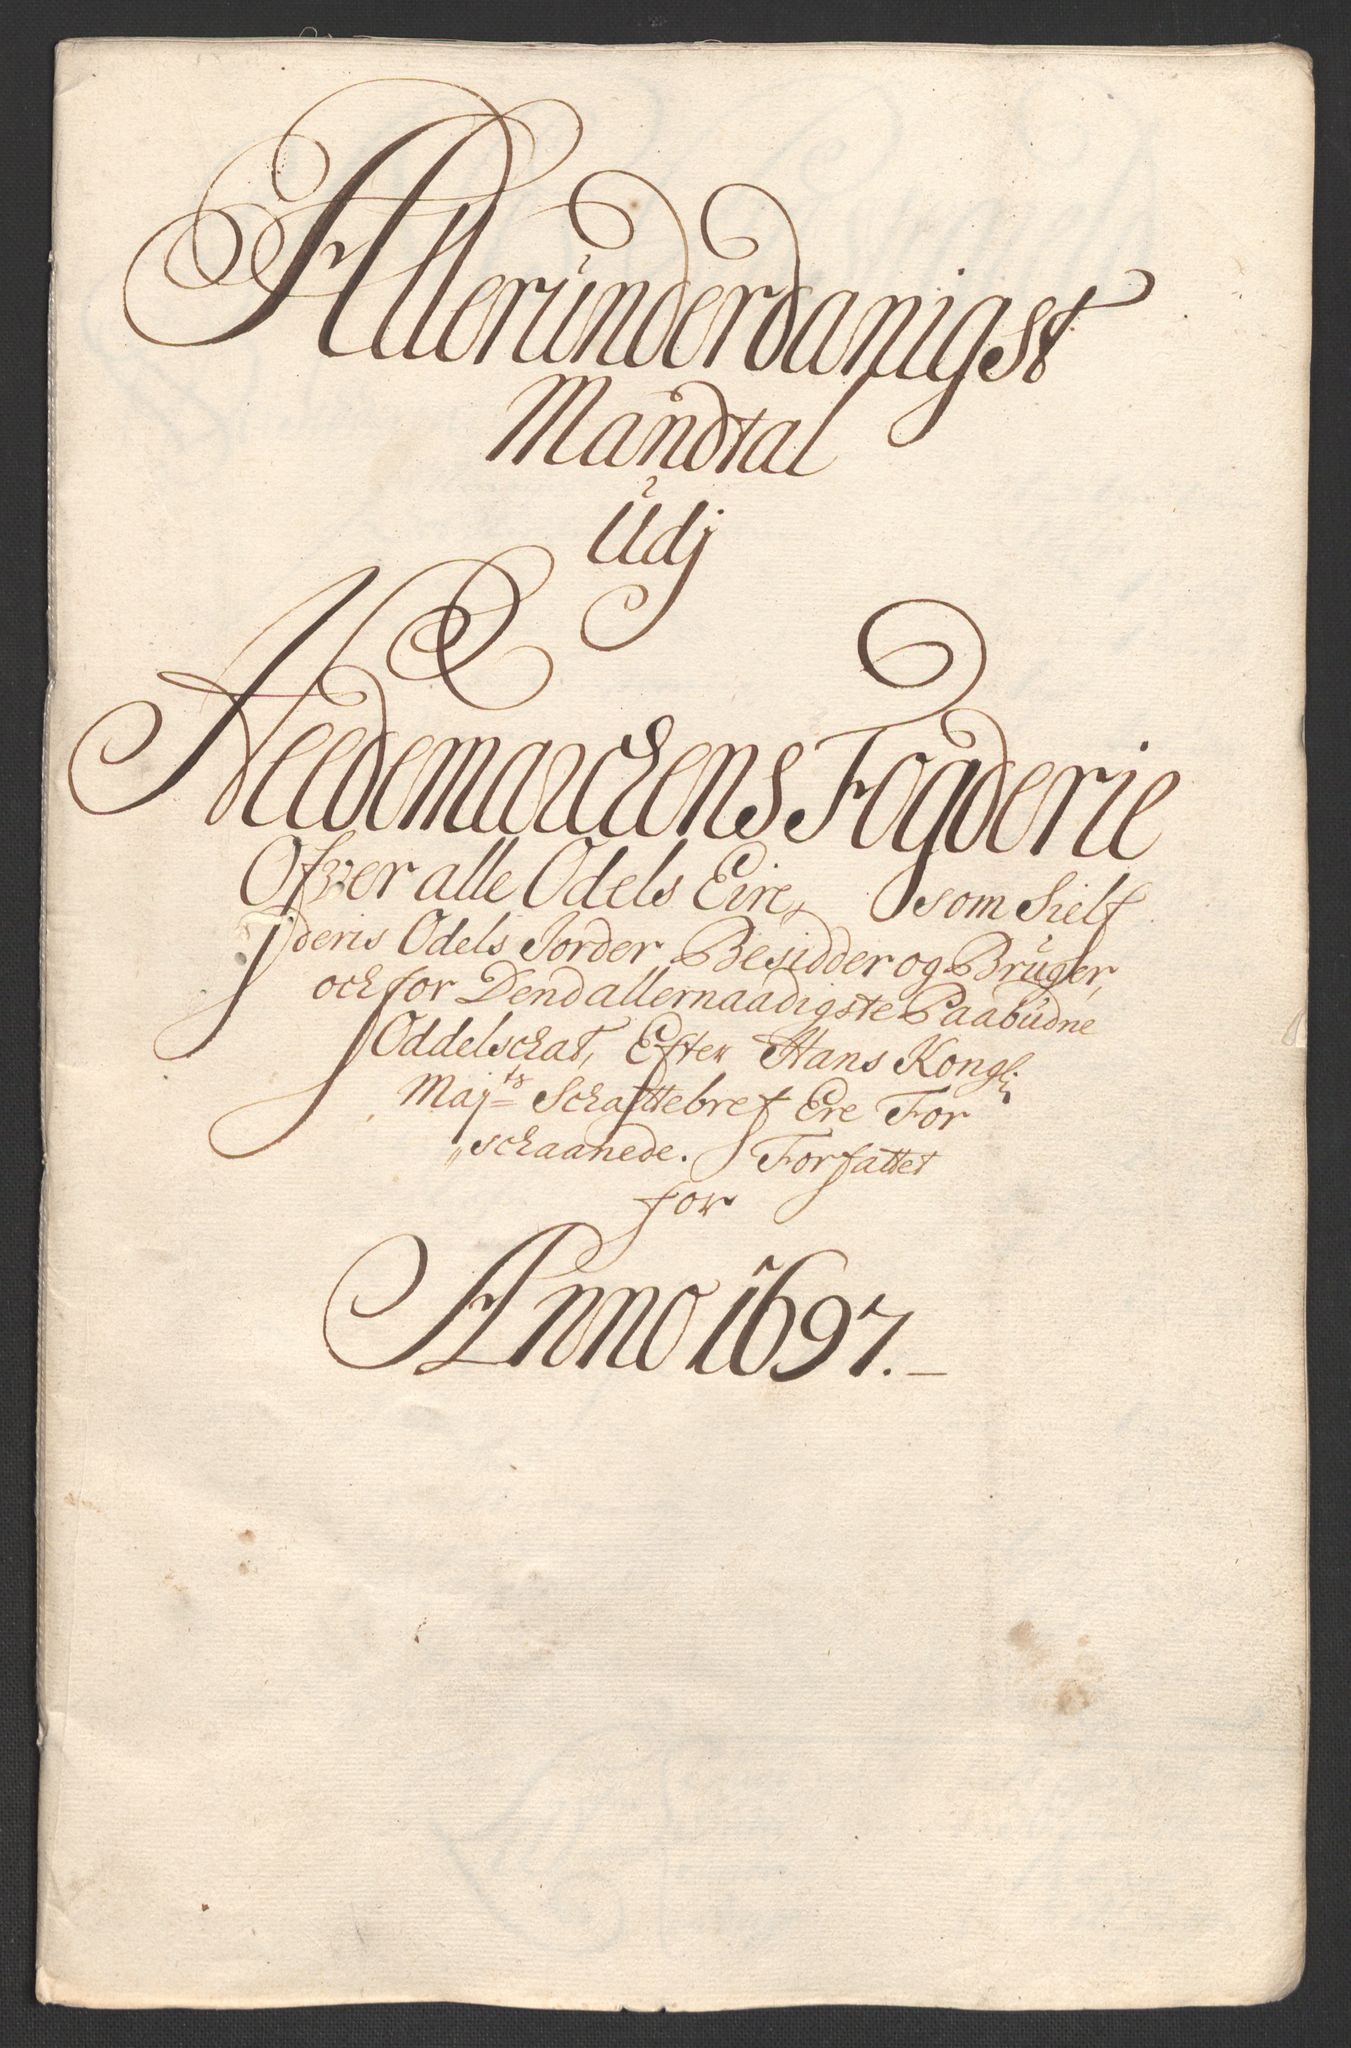 Allerunderdanigst
Mandtal
Udj
Heedemarckens Fogderie
Ofver alle Odels Eire, som Sielf
deris Odels Jorder Besidder og Bruger,
och for Dend allernaadigste Paabudne
Oddelschat, Efter Hans Kongl:
Maj:ts Schattebref Ere For
„schaanede. Forfattet
for
Anno 1697.